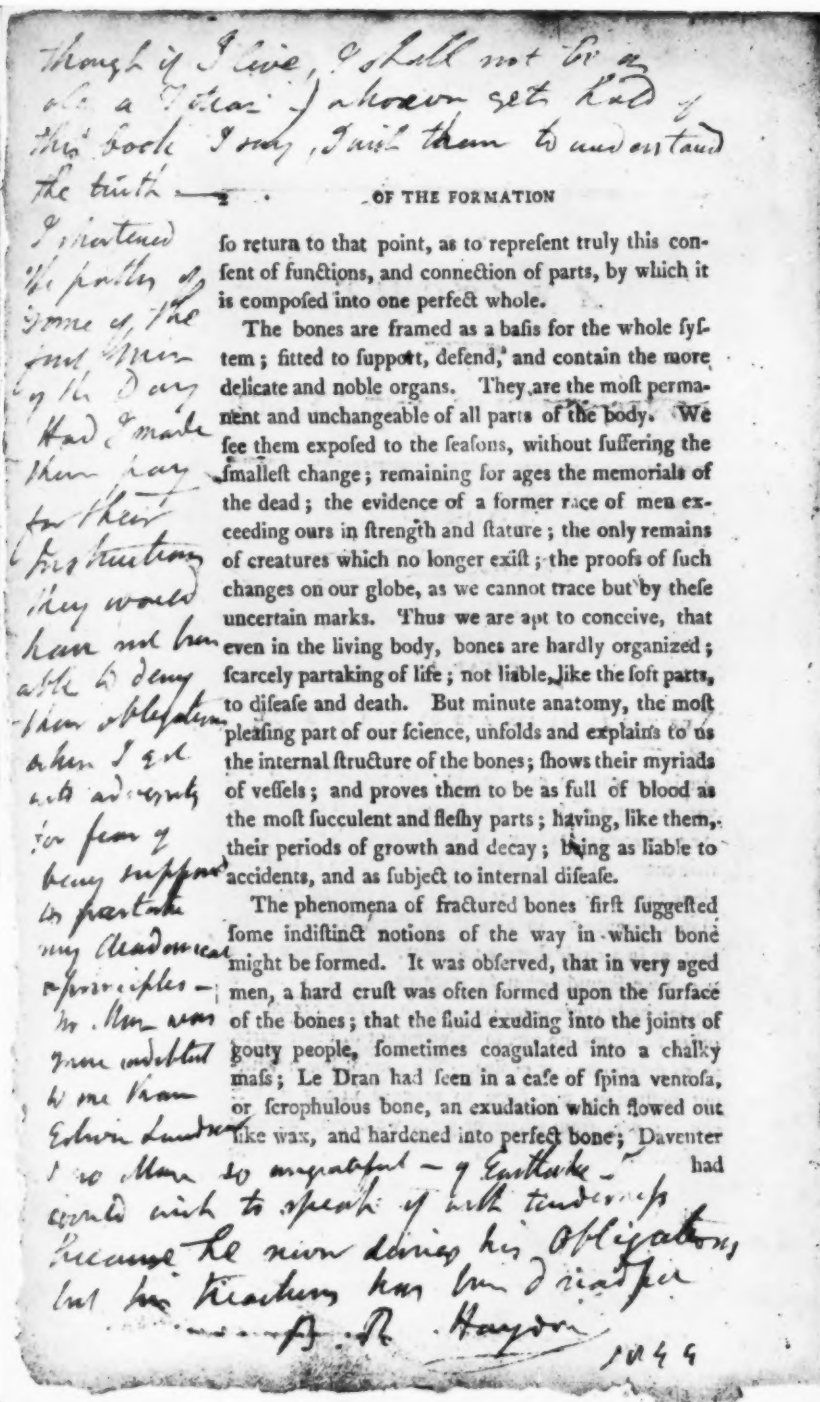 though if I live, I shall not be
whoever gets hold of
this book I say, I wish them to understand
the truth —
2 OF THE FORMATION
I shortened
the paths of
some of the
first Men
of the Day
Had I made
them pay
for their
Instructions
they would
have not been
able to deny
their obligations
when I got
into adversity
for fear of
being supposed
to partake
my Academical
principles —
no Man was
more indebted
to me than
Edwin Landseer
ſo return to that point, as to repreſent truly this con-
ſent of functions, and connection of parts, by which it
is compoſed into one perfect whole.
The bones are framed as a baſis for the whole ſyſ-
tem; fitted to ſupport, defend, and contain the more
delicate and noble organs. They are the moſt perma-
nent and unchangeable of all parts of the body. We
ſee them expoſed to the ſeaſons, without ſuffering the
ſmalleſt change; remaining for ages the memorials of
the dead; the evidence of a former race of men ex-
ceeding ours in ſtrength and ſtature; the only remains
of creatures which no longer exiſt; the proofs of ſuch
changes on our globe, as we cannot trace but by theſe
uncertain marks. Thus we are apt to conceive, that
even in the living body, bones are hardly organized;
ſcarcely partaking of life; not liable, like the ſoft parts,
to diſeaſe and death. But minute anatomy, the moſt
pleaſing part of our ſcience, unfolds and explains to us
the internal ſtructure of the bones; ſhows their myriads
of veſſels; and proves them to be as full of blood as
the moſt ſucculent and fleſhy parts; having, like them,
their periods of growth and decay; being as liable to
accidents, and as ſubject to internal diſeaſe.
The phenomena of fractured bones firſt ſuggeſted
ſome indiſtinct notions of the way in which bone
might be formed. It was obſerved, that in very aged
men, a hard cruſt was often formed upon the ſurface
of the bones; that the fluid exuding into the joints of
gouty people, ſometimes coagulated into a chalky
maſs; Le Dran had ſeen in a caſe of ſpina ventoſa,
or ſcrophulous bone, an exudation which flowed out
like wax, and hardened into perfect bone; Daventer
had
& no Man so ungrateful — of Eastlake I
would wish to speak of with tenderness
because he never denies his Obligations,
but his treachery has been dreadful
B. R. Haydon
1844